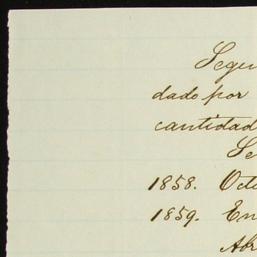 Segu
dado por
cantidad
Se
1858. Octu
1859. En
Abr